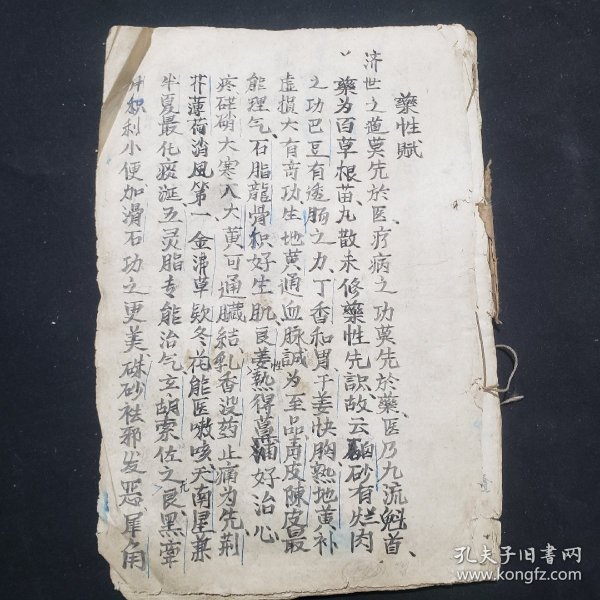 藥性賦
济世之道莫先於医疗病之功莫先於藥医乃九流魁首
藥为百草根苗丸散未修藥性先識故云硇砂有烂肉
之功巴豆有透肠之力丁香和胃干姜快胸熟地黄补
虚損大有奇功生地黄通血脉誠为至品青皮陳皮最
能理气石脂龍骨积好生肌良姜性熱得菖蒲好治心
疼硭硝大寒入大黄可通臟結乳香没药止痛为先荆
芥薄荷消風第一金沸草欵冬花能医嗽咳天南星兼
半夏最化痰涎五灵脂专能治气玄胡索佐之良黑牽
积利小便加滑石功之更美硃砂祛邪发恶犀角
孔夫子旧書网
www.kongfz.com